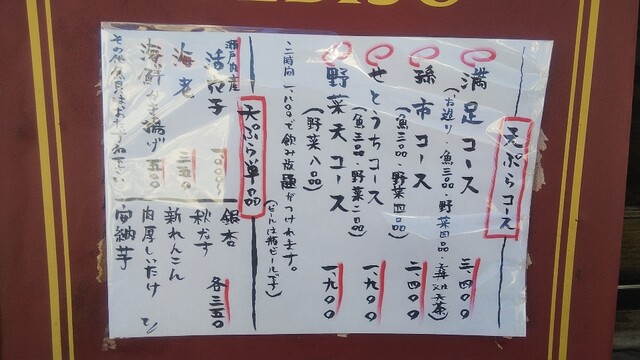 天ぷらコース
満足コース 三、四〇〇
(お造り・魚三品・野菜四品・天茶)
孫市コース 二、四〇〇
(魚三品・野菜四品)
せとうちコース 一、九〇〇
(魚三品・野菜二品)
野菜天コース 一、九〇〇
(野菜八品)
二時間一、八〇〇で飲み放題がつけれます。
(ビールは瓶ビールです)
天ぷら単品
瀬戸内産
活穴子 一〇〇〇
海老 三五〇
海鮮かき揚げ 五五〇
その他
銀杏
秋なす
新れんこん
肉厚しいたけ
安納芋
各三五〇